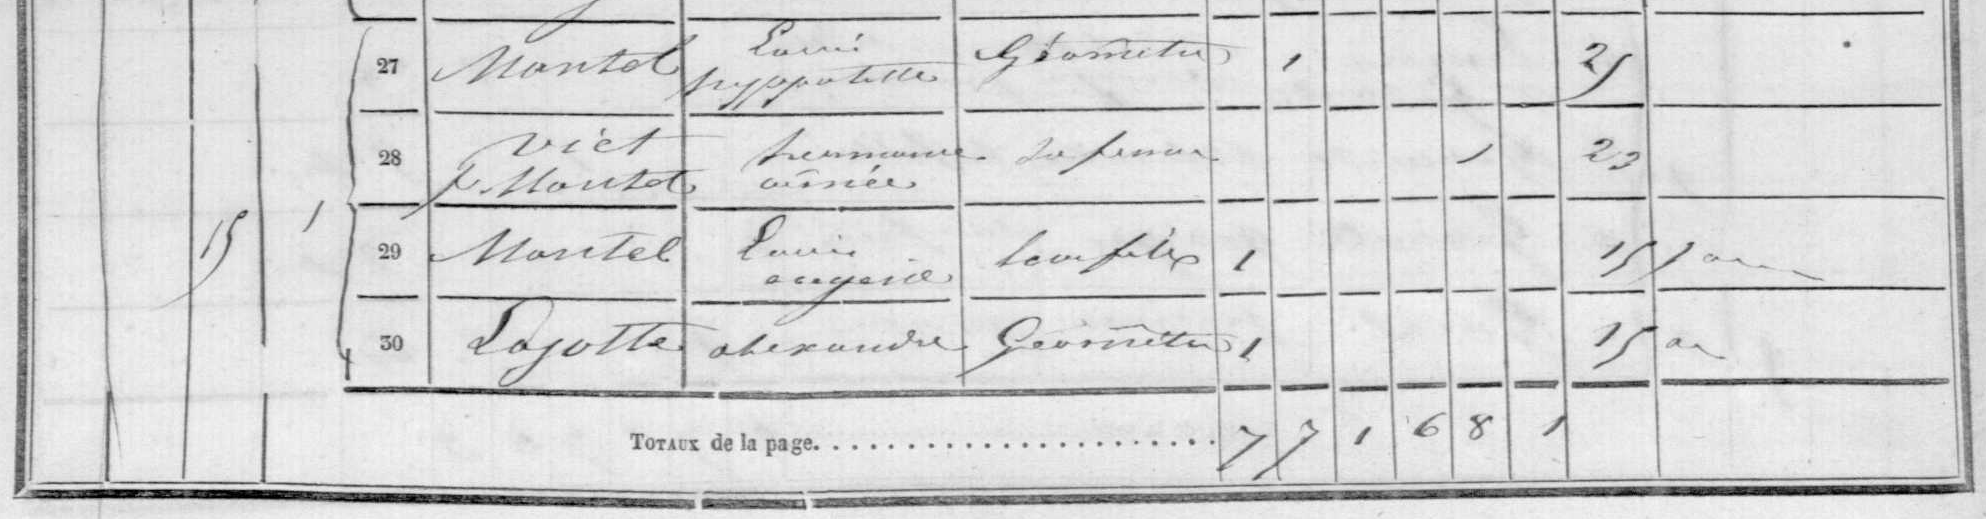 27 Montel Louis hyppolitte Géomètre 1 25
28 Viet f. Montel hermance aimée sa femme 1 23
15 1 29 Montel Louis eugene leur fils 1 15 jours
30 Lagotte alexandre Géomètre 1 15 an
TOTAUX de la page. 7 7 1 6 8 1